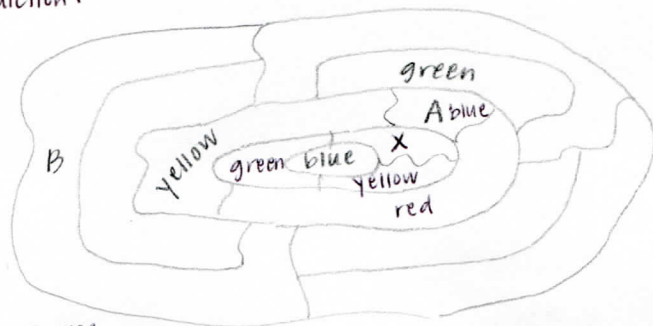 green
A blue
B
yellow
X
green blue
yellow
red